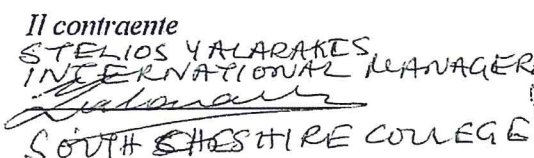 Il contraente
STELIOS YALARAKIS
INTERNATIONAL MANAGER
SOUTH CHESHIRE COLLEGE